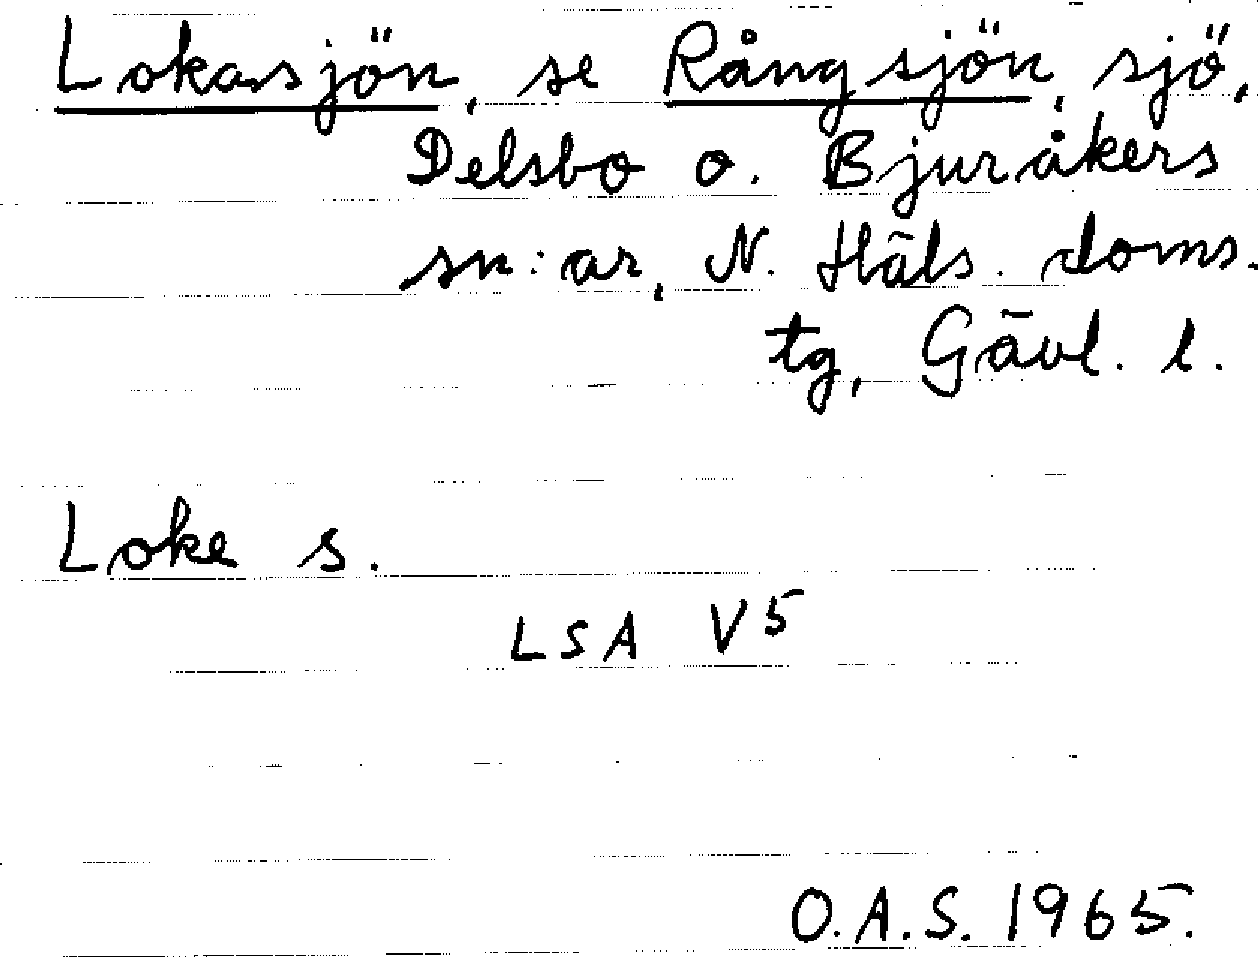 Lokasjön, se Rångsjön, sjö,
Delsbo o. Bjuråkers
sn:ar, N. Häls. doms.
tg, Gävl. l.
Loke s.
LSA V5
O.A.S. 1965.